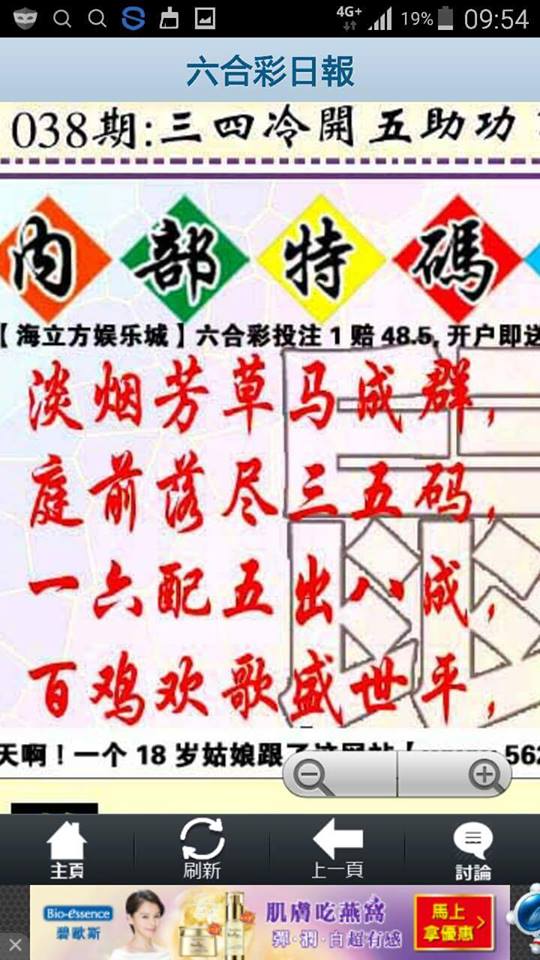 4G+ 19% 09:54
六合彩日報
038期:三四冷開五助功
内部特碼
【海立方娱乐城】六合彩投注1赔48.5,开户即送
淡烟芳草马成群,
庭前落尽三五码,
一六配五出八成,
百鸡欢歌盛世平,
天啊!一个18岁姑娘跟了这网站【www.562
主頁 刷新 上一頁 討論
Bio-essence
碧歐斯
肌膚吃燕窩
彈·潤·白超有感
馬上
拿優惠